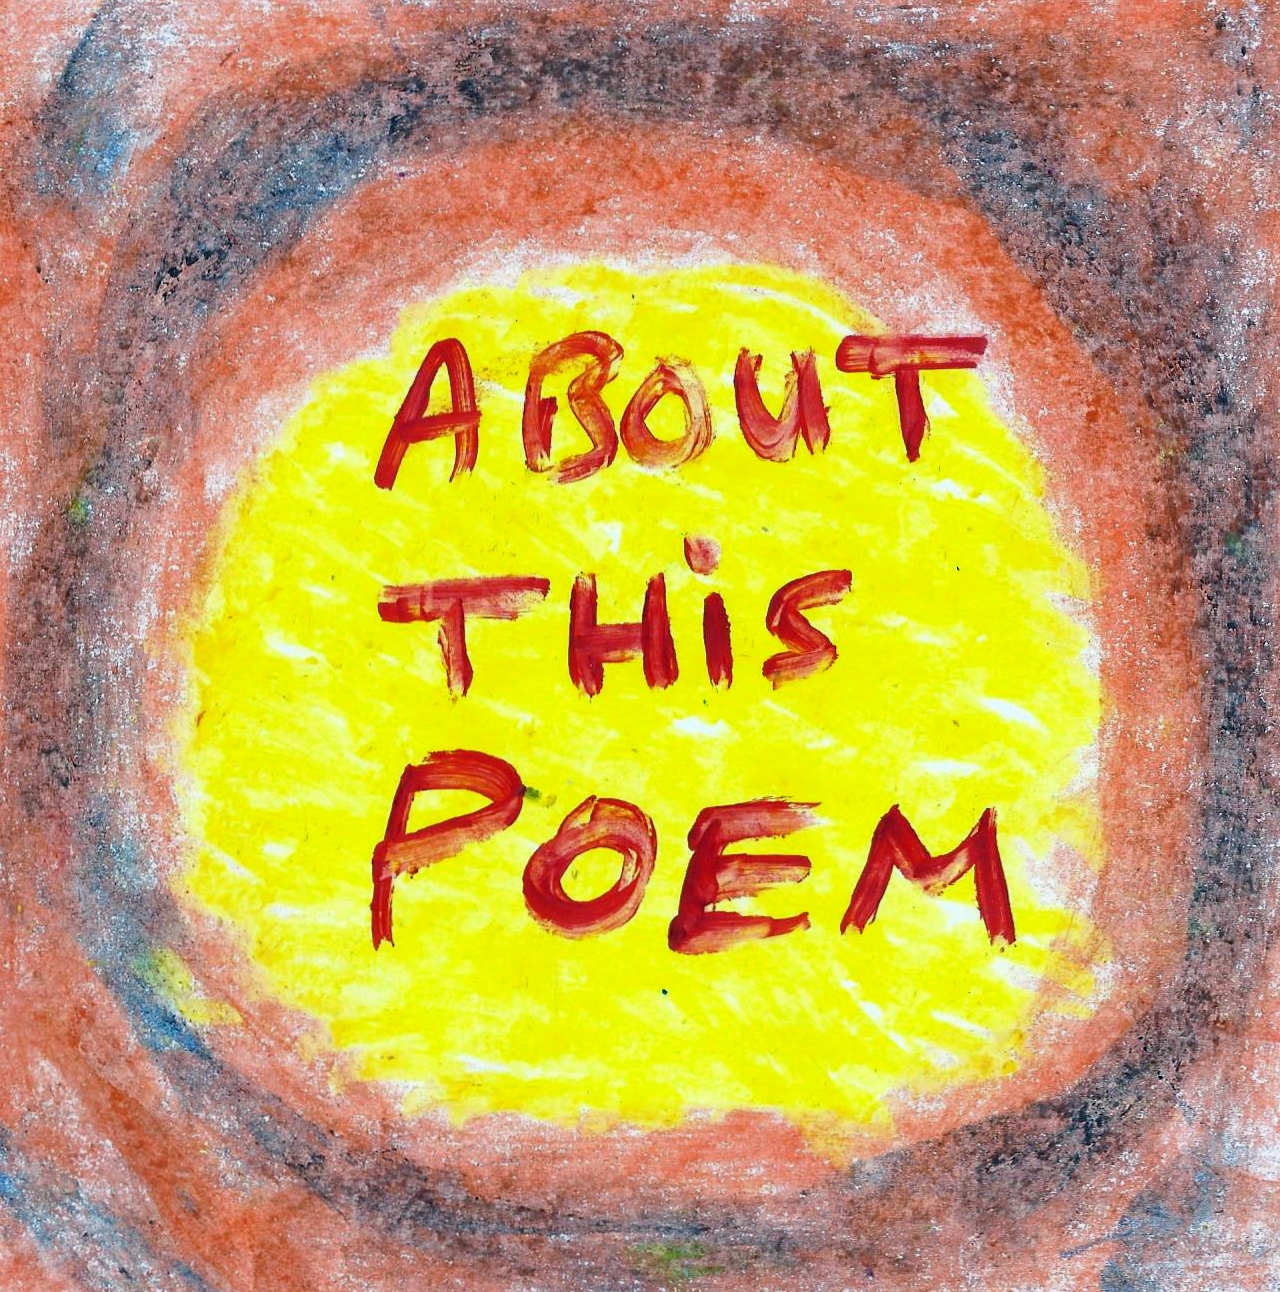 ABOUT
THiS
POEM